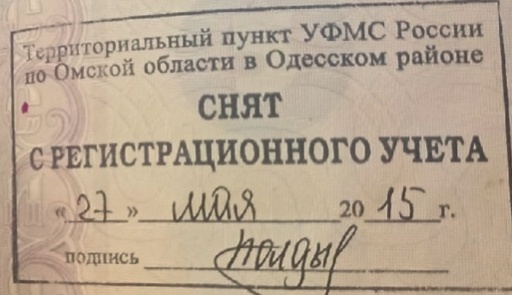 Территориальный пункт УФМС России
по Омской области в Одесском районе
СНЯТ
С РЕГИСТРАЦИОННОГО УЧЕТА
«27» мая 2015 г.
подпись